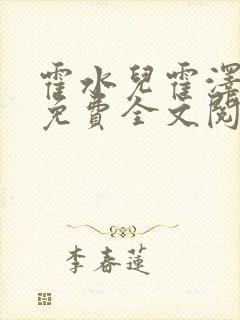 霍水兒霍澤
免費全文閱
李春蓮